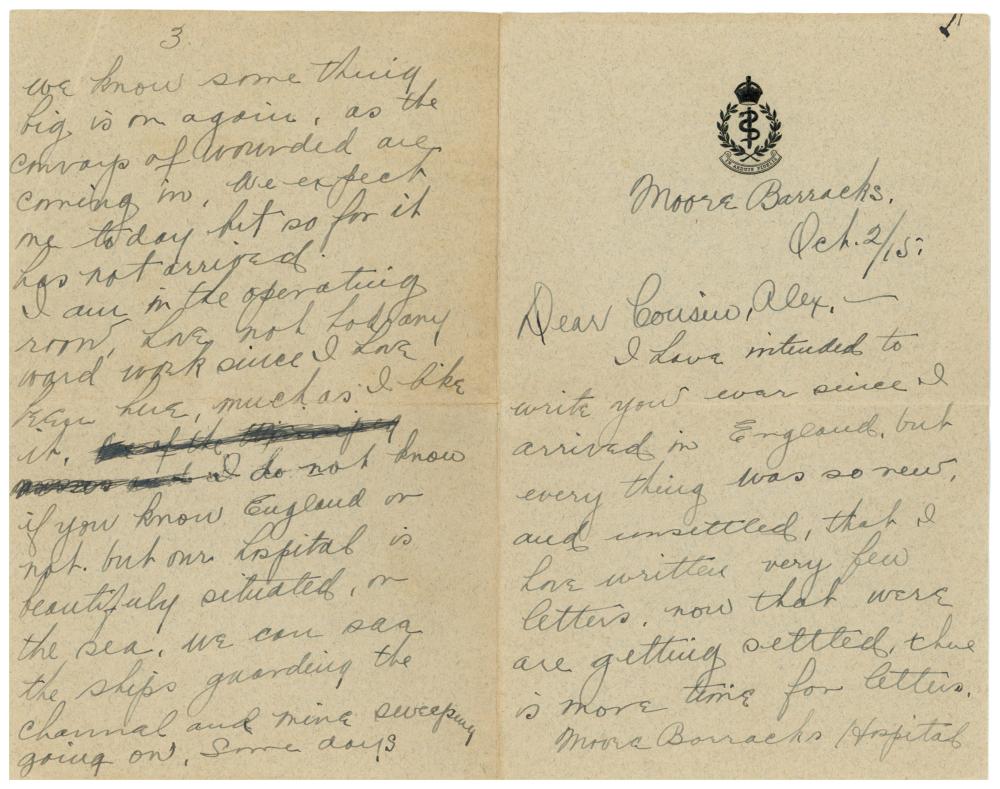 3
we know some thing
big is on again, as the
convoys of wounded are
coming in, We expect
one today but so far it
has not arrived.
I am in the operating
room, have not had any
ward work since I have
been here, much as I like
it, One of the Winnipeg
nurses and I do not know
if you know England or
not. but our hospital is
beautifuly situated, on
the sea, we can see
the ships guarding the
channel and mine sweeping
going on, Some days
IN ARDUIS FIDELIS
Moore Barracks.
Oct. 2/15.
Dear Cousin, Alex, —
I have intended to
write you ever since I
arrived in England, but
every thing was so new,
and unsettled, that I
have written very few
letters. now that were
are getting settled, there
is more time for letters.
Moore Barracks Hospital